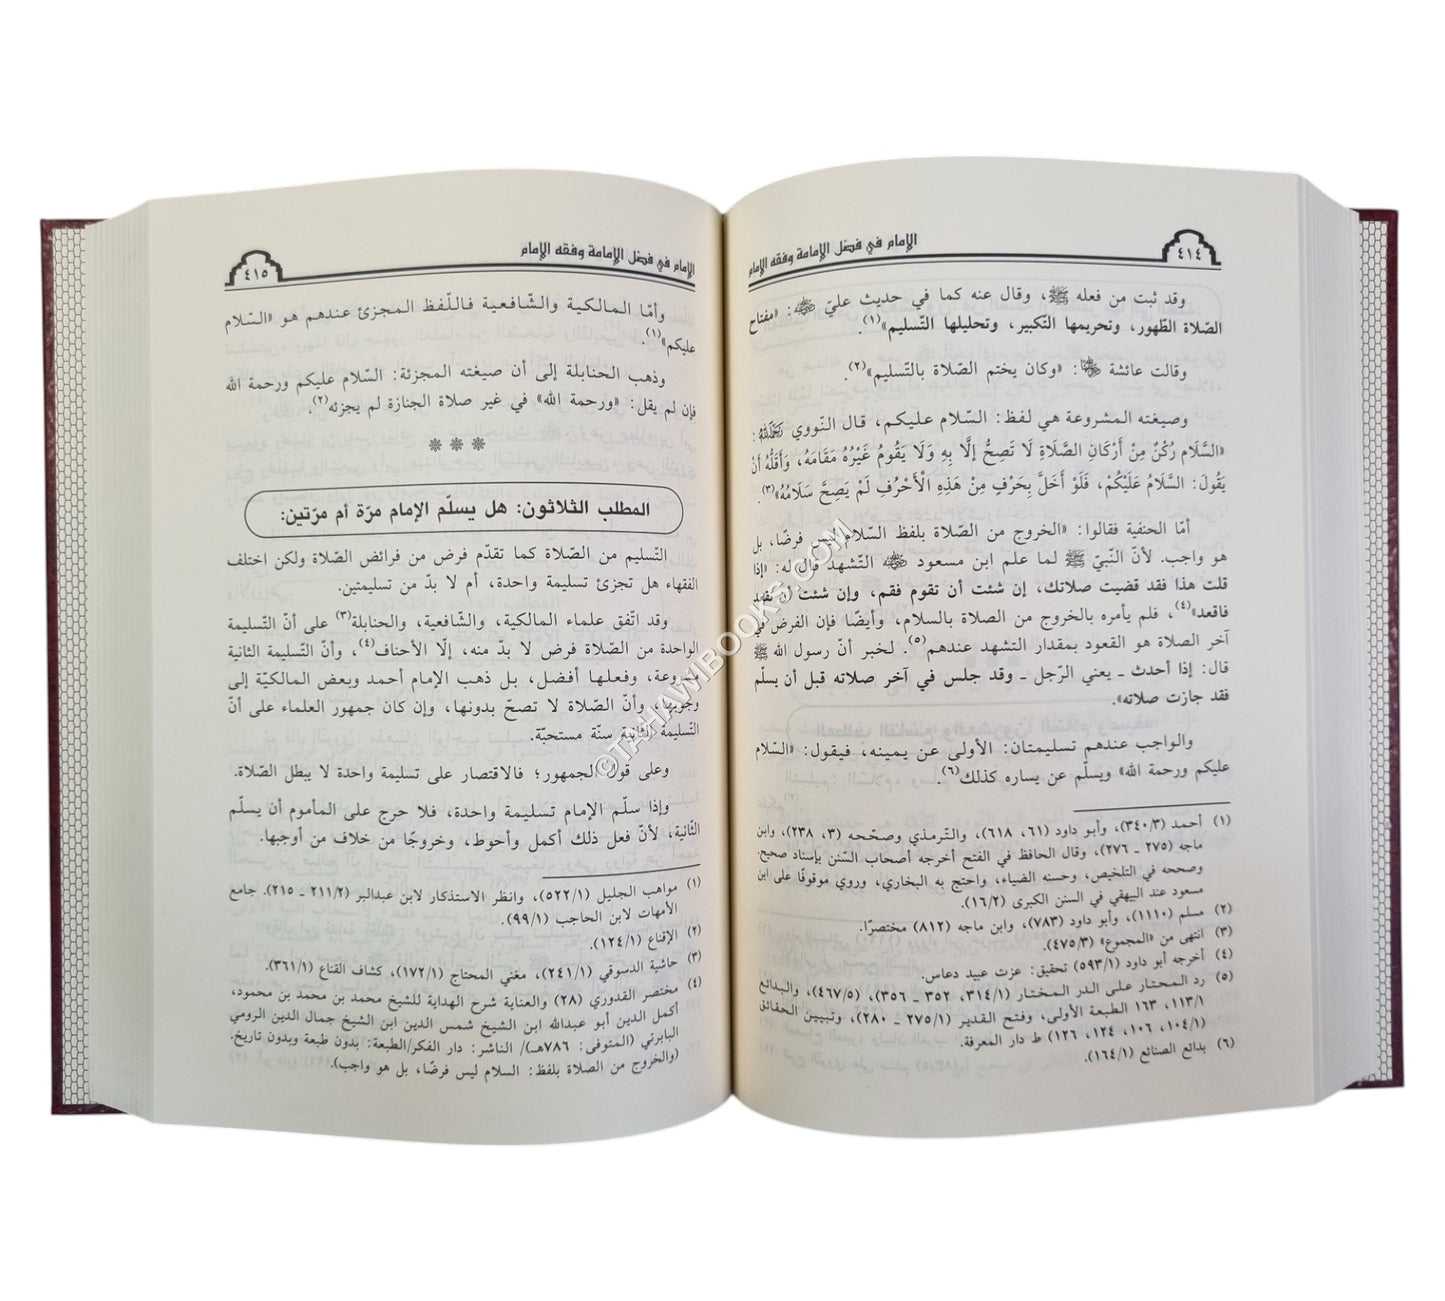 ٤١٤
الإمام في فضل الإمامة وفقه الإمام
وقد ثبت من فعله ﷺ، وقال عنه كما في حديث عليّ رضي الله عنه: «مفتاح
الصّلاة الطّهور، وتحريمها التّكبير، وتحليلها التّسليم»(١).
وقالت عائشة رضي الله عنها: «وكان يختم الصّلاة بالتّسليم»(٢).
وصيغته المشروعة هي لفظ: السّلام عليكم، قال النّووي رحمه الله:
«السَّلَام رُكْنٌ مِنْ أَرْكَانِ الصَّلَاةِ لَا تَصِحُّ إلَّا بِهِ وَلَا يَقُومُ غَيْرُهُ مَقَامَهُ، وَأَقَلُّهُ أَنْ
يَقُولَ: السَّلَامُ عَلَيْكُمْ، فَلَوْ أَخَلَّ بِحَرْفٍ مِنْ هَذِهِ الْأَحْرُفِ لَمْ يَصِحَّ سَلَامُهُ»(٣).
أمّا الحنفية فقالوا: «الخروج من الصّلاة بلفظ السّلام ليس فرضًا، بل
هو واجب. لأنّ النّبيّ ﷺ لما علم ابن مسعود رضي الله عنه التّشهد قال له: «إذا
قلت هذا فقد قضيت صلاتك، إن شئت أن تقوم فقم، وإن شئت أن تقعد
فاقعد»(٤)، فلم يأمره بالخروج من الصّلاة بالسّلام، وأيضًا فإن الفرض في
آخر الصّلاة هو القعود بمقدار التشهد عندهم(٥). لخبر أنّ رسول الله ﷺ
قال: إذا أحدث ـ يعني الرّجل ـ وقد جلس في آخر صلاته قبل أن يسلّم
فقد جازت صلاته».
والواجب عندهم تسليمتان: الأولى عن يمينه، فيقول: «السّلام
عليكم ورحمة الله» ويسلّم عن يساره كذلك(٦).
(١) أحمد (٣٤٠/٣)، وأبو داود (٦١، ٦١٨)، والتّرمذي وصحّحه (٣، ٢٣٨)، وابن
ماجه (٢٧٥ ـ ٢٧٦)، وقال الحافظ في الفتح أخرجه أصحاب السّنن بإسناد صحيح.
وصححه في التلخيص، وحسنه الضياء، واحتج به البخاري، وروي موقوفًا على ابن
مسعود عند البيهقي في السنن الكبرى (١٦/٢).
(٢) مسلم (١١١٠)، وأبو داود (٧٨٣)، وابن ماجه (٨١٢) مختصرًا.
(٣) انتهى من «المجموع» (٤٧٥/٣).
(٤) أخرجه أبو داود (٥٩٣/١) تحقيق: عزت عبيد دعاس.
(٥) رد المحتار على الدر المختار (٣١٤/١، ٣٥٢ ـ ٣٥٦)، (٤٦٧/٥)، والبدائع
١١٣/١، ١٦٣ الطبعة الأولى، وفتح القدير (٢٧٥/١ ـ ٢٨٠)، وتبيين الحقائق
(١٠٤/١، ١٠٦، ١٢٤، ١٢٦) ط دار المعرفة.
(٦) بدائع الصنائع (١٦٤/١).
الإمام في فضل الإمامة وفقه الإمام
٤١٥
وأمّا المالكية والشّافعية فاللّفظ المجزئ عندهم هو «السّلام
عليكم»(١).
وذهب الحنابلة إلى أن صيغته المجزئة: السّلام عليكم ورحمة الله
فإن لم يقل: «ورحمة الله» في غير صلاة الجنازة لم يجزئه(٢).
* * *
المطلب الثلاثون: هل يسلّم الإمام مرّة أم مرّتين:
التّسليم من الصّلاة كما تقدّم فرض من فرائض الصّلاة ولكن اختلف
الفقهاء هل تجزئ تسليمة واحدة، أم لا بدّ من تسليمتين.
وقد اتّفق علماء المالكية، والشّافعية، والحنابلة(٣) على أنّ التّسليمة
الواحدة من الصّلاة فرض لا بدّ منه، إلّا الأحناف(٤)، وأنّ التّسليمة الثانية
مشروعة، وفعلها أفضل، بل ذهب الإمام أحمد وبعض المالكيّة إلى
وجوبها، وأنّ الصّلاة لا تصحّ بدونها، وإن كان جمهور العلماء على أنّ
التّسليمة الثانية سنّة مستحبّة.
وعلى قول الجمهور؛ فالاقتصار على تسليمة واحدة لا يبطل الصّلاة.
وإذا سلّم الإمام تسليمة واحدة، فلا حرج على المأموم أن يسلّم
الثّانية، لأنّ فعل ذلك أكمل وأحوط، وخروجًا من خلاف من أوجبها.
(١) مواهب الجليل (٥٢٢/١)، وانظر الاستذكار لابن عبدالبر (٢١١/٢ ـ ٢١٥). جامع
الأمهات لابن الحاجب (٩٩/١).
(٢) الإقناع (١٢٤/١).
(٣) حاشية الدسوقي (٢٤١/١)، مغني المحتاج (١٧٢/١)، كشاف القناع (٣٦١/١).
(٤) مختصر القدوري (٢٨) والعناية شرح الهداية للشيخ محمد بن محمد بن محمود،
أكمل الدين أبو عبدالله ابن الشيخ شمس الدين ابن الشيخ جمال الدين الرومي
البابرتي (المتوفى: ٧٨٦هـ)/ الناشر: دار الفكر/الطبعة: بدون طبعة وبدون تاريخ.
(والخروج من الصلاة بلفظ: السلام ليس فرضًا، بل هو واجب).
©TAHAWIBOOKS.COM